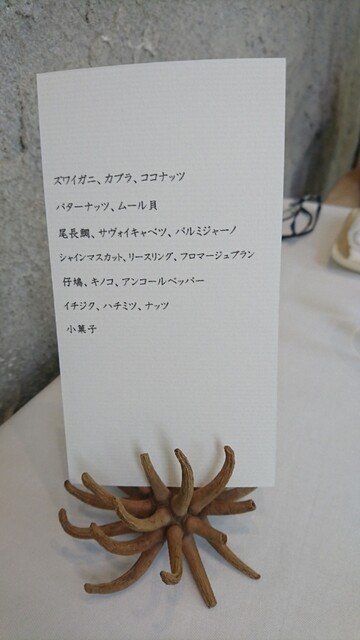 ズワイガニ、カブラ、ココナッツ
バターナッツ、ムール貝
尾長鯛、サヴォイキャベツ、パルミジャーノ
シャインマスカット、リースリング、フロマージュブラン
仔鳩、キノコ、アンコールペッパー
イチジク、ハチミツ、ナッツ
小菓子